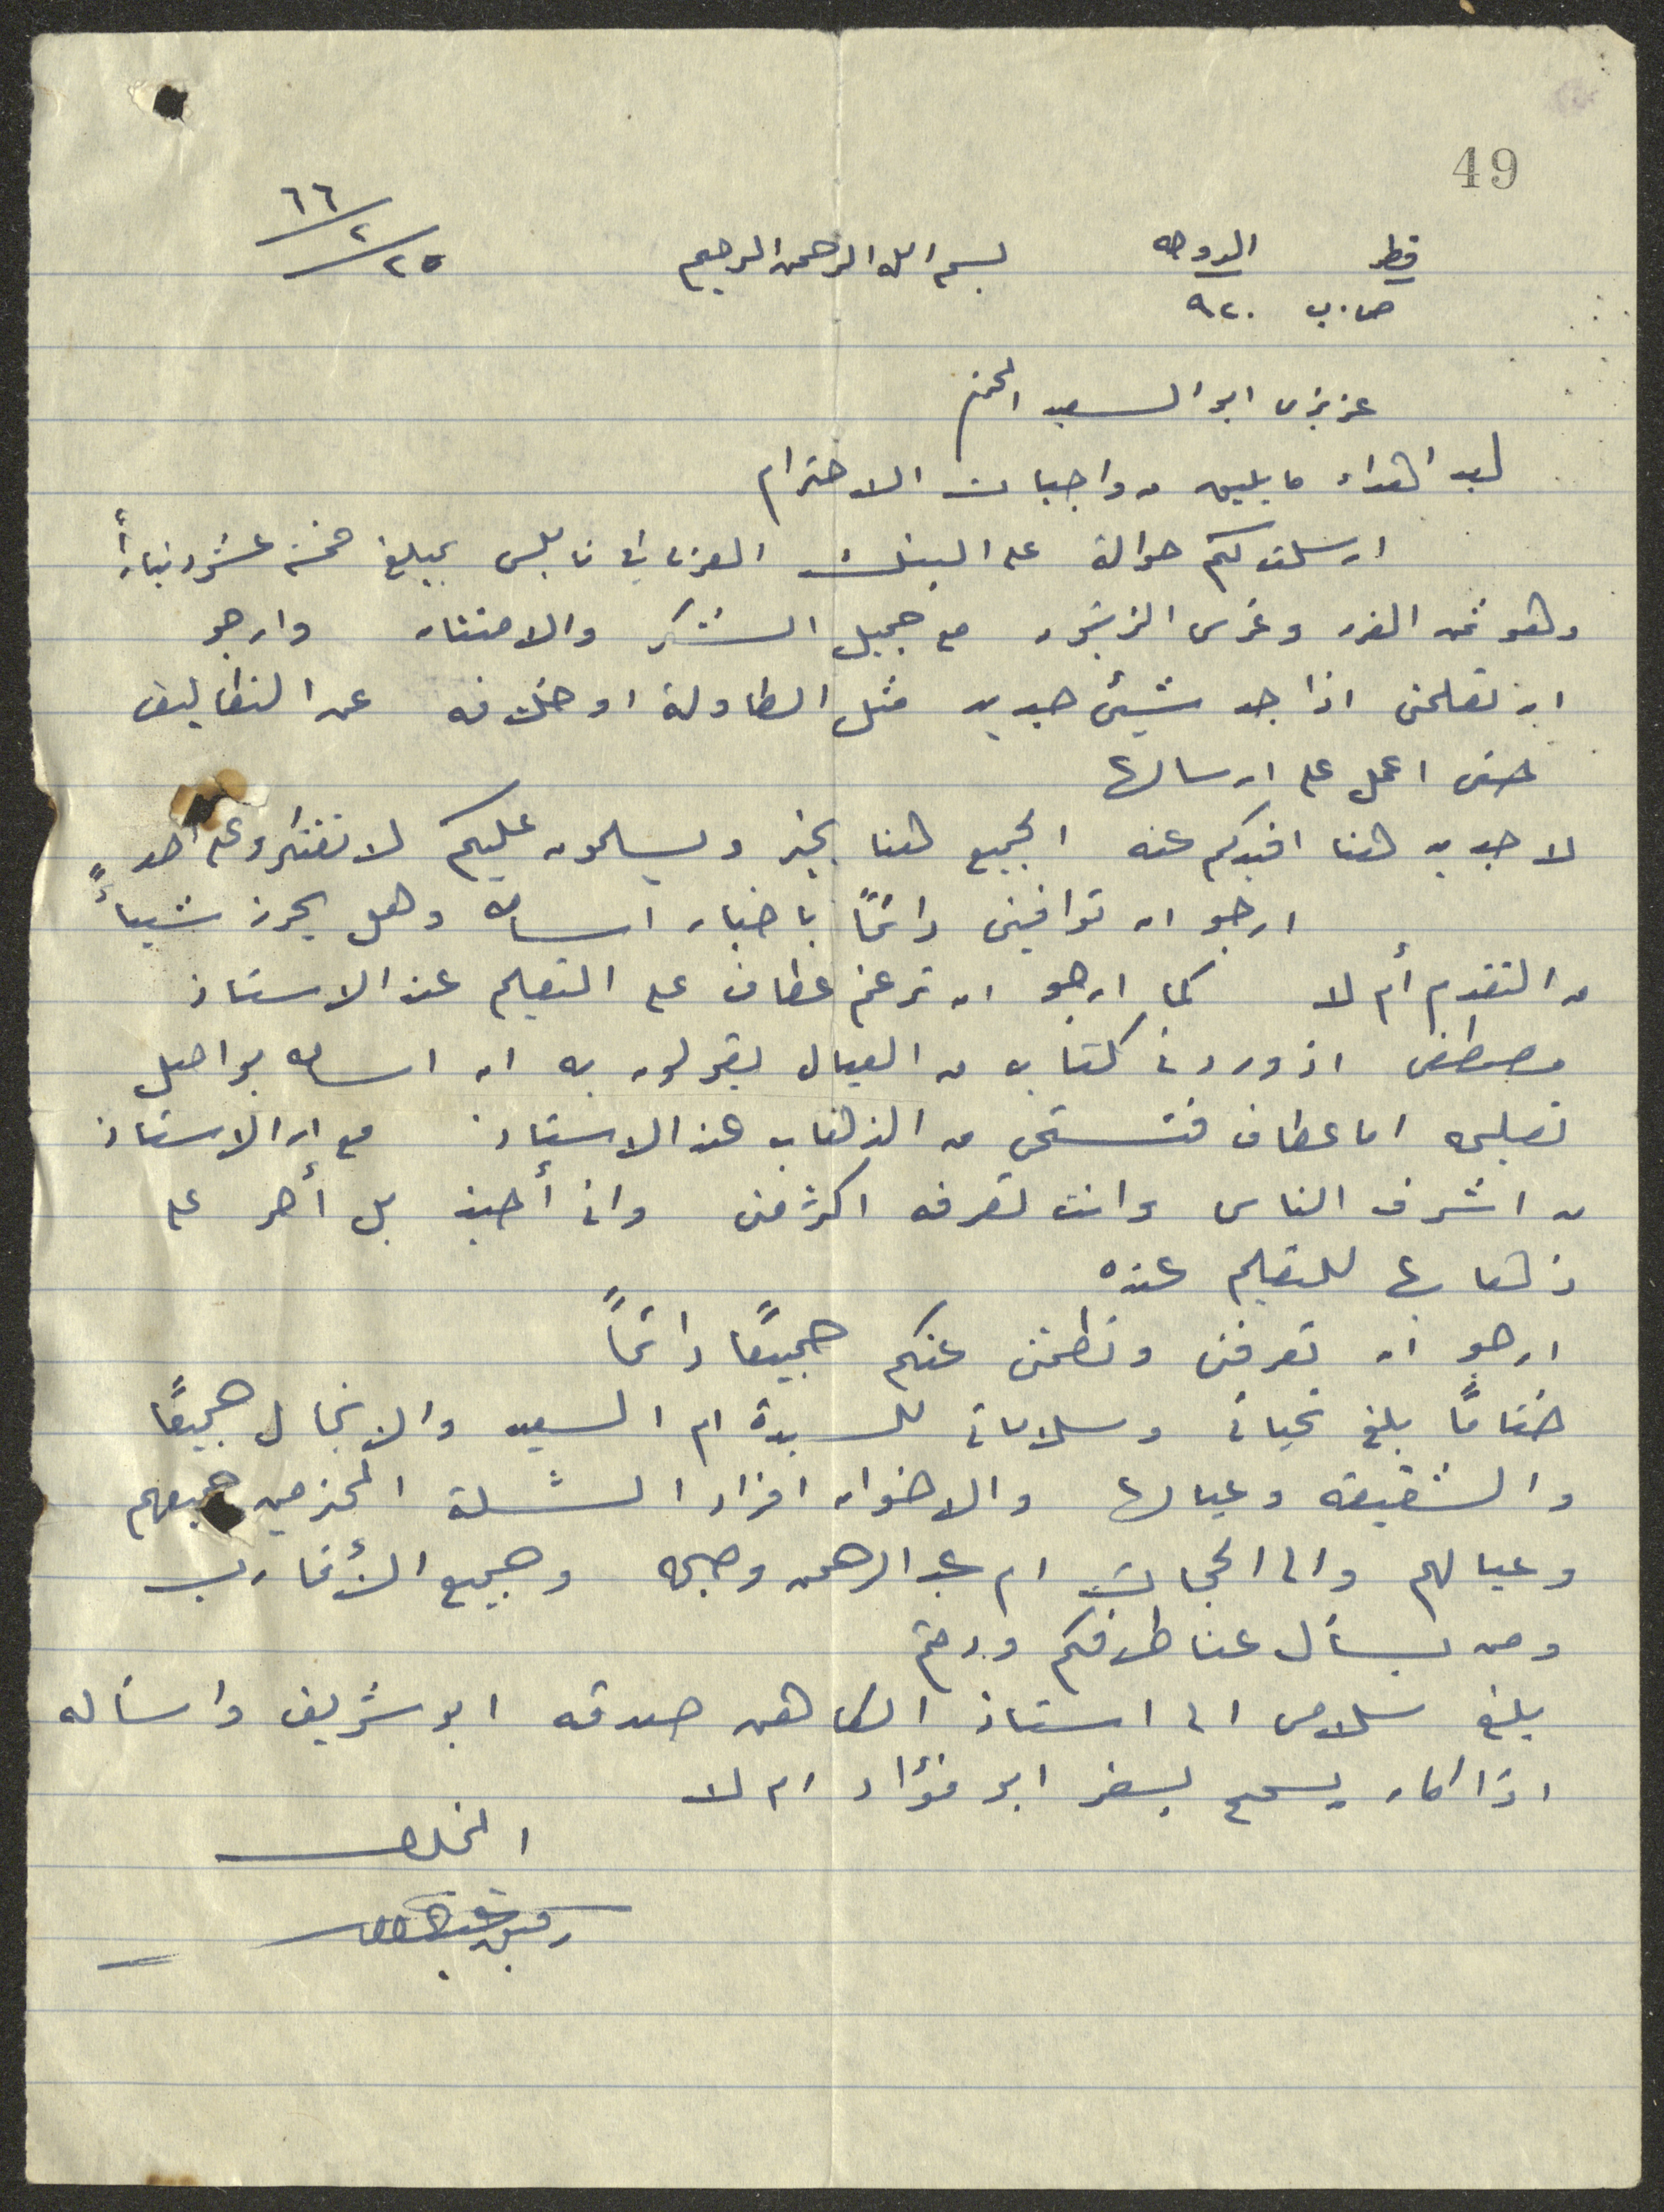 49
٦٦/٢/٢٥
قطر الدوحه بسم الله الرحمن الرحيم
ص.ب ٩٢٠
عزيزي ابو السعيد المحترم
بعد اهداء ما يليق من واجبات الاحترام
ارسلت لكم حوالة على البنك العربي في نابلس بمبلغ خمسة عشر ديناراً
وهو ثمن الفرد وغرس الزيتون مع جميل الشكر والامتنان وارجو
ان تعلمني اذا جد شيئ جديد مثل الطاولة او خلافه عن التكاليف
حتى اعمل على ارسالها
لا جديد هنا افيدكم عنه الجميع هنا بخير ويسلمون عليكم لا تفتكروا على احد
ارجو ان توافيني دائماً باخبار اسامه وهل يحرز شيئاً
من التقدم أم لا كما ارجو ان ترغم عطاف على التعليم عند الاستاذ
مصطفى اذ وردني كتاب من العيال يقولون به ان اسامه يواصل
تعليمه اما عطاف فتستحي من الذهاب عند الاستاذ مع ان الاستاذ
من اشرف الناس وانت تعرفه اكثر مني واني أحبذ بل أصر على
ذهابها للتعليم عنده
ارجو ان تعرفني وتطمني عنكم جميعاً دائماً
ختاماً بلغ تحياتي وسلاماتي للسيدة ام السعيد والانجال جميعاً
والشقيقه وعيالها والاخوان افراد الشلة المحترمين جميعهم
وعيالهم والى الحجات ام عبد الرحمن وصبحه وجميع الأقارب
ومن يسأل عنا طرفكم ودمتم
بلغ سلامي الى استاذ الكاهن صدقه ابو شريف واسأله
اذا كان يسمح بسفر ابو فؤاد ام لا
المخلص